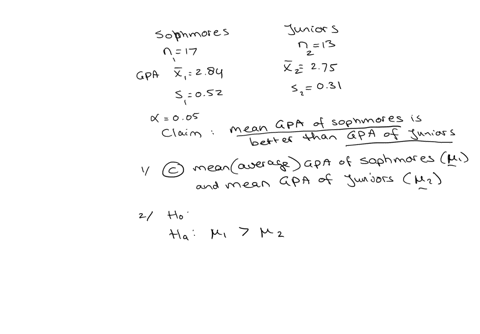 Sophmores Juniors
n₁=17 n₂=13
GPA x̄₁=2.84 x̄₂=2.75
s₁=0.52 s₂=0.31
α=0.05
Claim: mean GPA of sophmores is
better than GPA of Juniors
1/ (C) mean (average) GPA of sophmores (μ₁)
and mean GPA of Juniors (μ₂)
2/ H₀:
Hₐ: μ₁ > μ₂